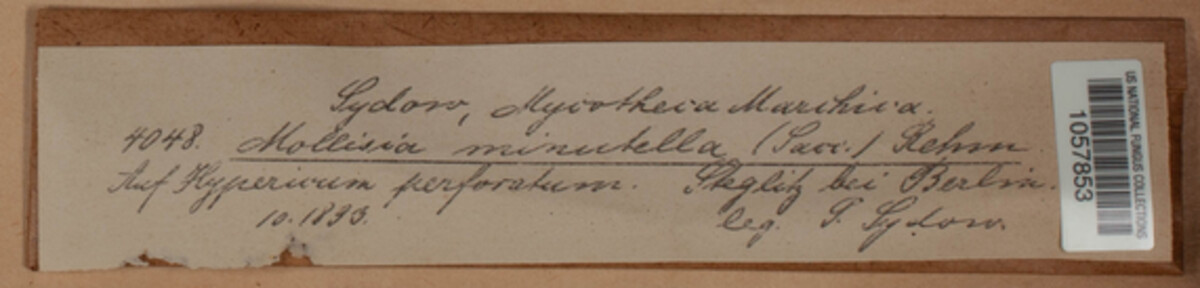 Sydow, Mycotheca Marchica.
4048. Mollisia minutella (Sacc.) Rehm
Auf Hypericum perforatum. Steglitz bei Berlin.
10.1893. leg. P. Sydow.
US NATIONAL FUNGUS COLLECTIONS
1057853